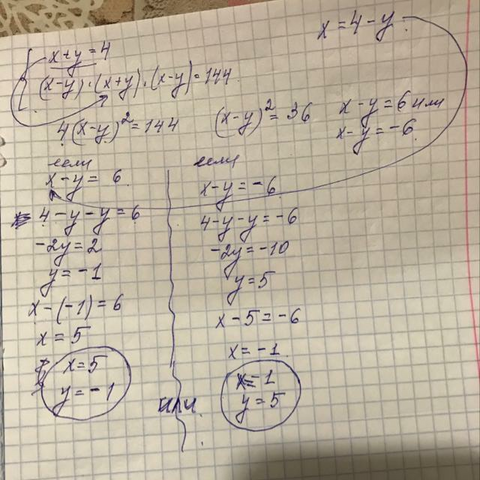 x = 4 - y
x + y = 4
(x-y)·(x+y)·(x-y) = 144
4(x-y)² = 144
(x-y)² = 36
x - y = 6 или
x - y = -6
если
x - y = 6
4 - y - y = 6
-2y = 2
y = -1
x - (-1) = 6
x = 5
x = 5
y = -1
или
если
x - y = -6
4 - y - y = -6
-2y = -10
y = 5
x - 5 = -6
x = -1
x = 1
y = 5